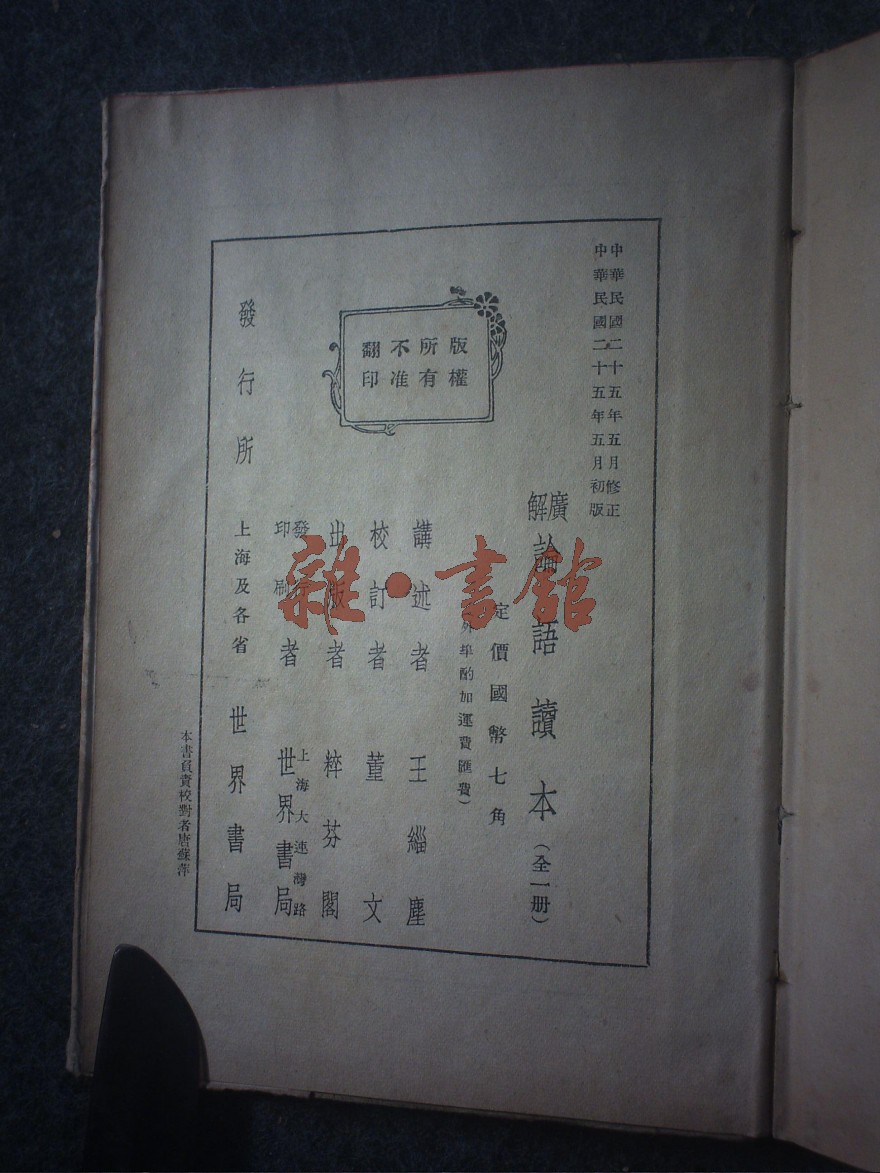 中華民國二十五年五月修正
中華民國二十五年五月初版
廣解論語讀本（全一册）
定價國幣七角
外埠酌加運費匯費）
版權
所有
不准
翻印
講述者 王緇塵
校訂者 董文
出版者 粹芬閣
發行印刷者 上海大連灣路 世界書局
發行所 上海及各省 世界書局
本書負責校對者唐蘇萍
雜·書館